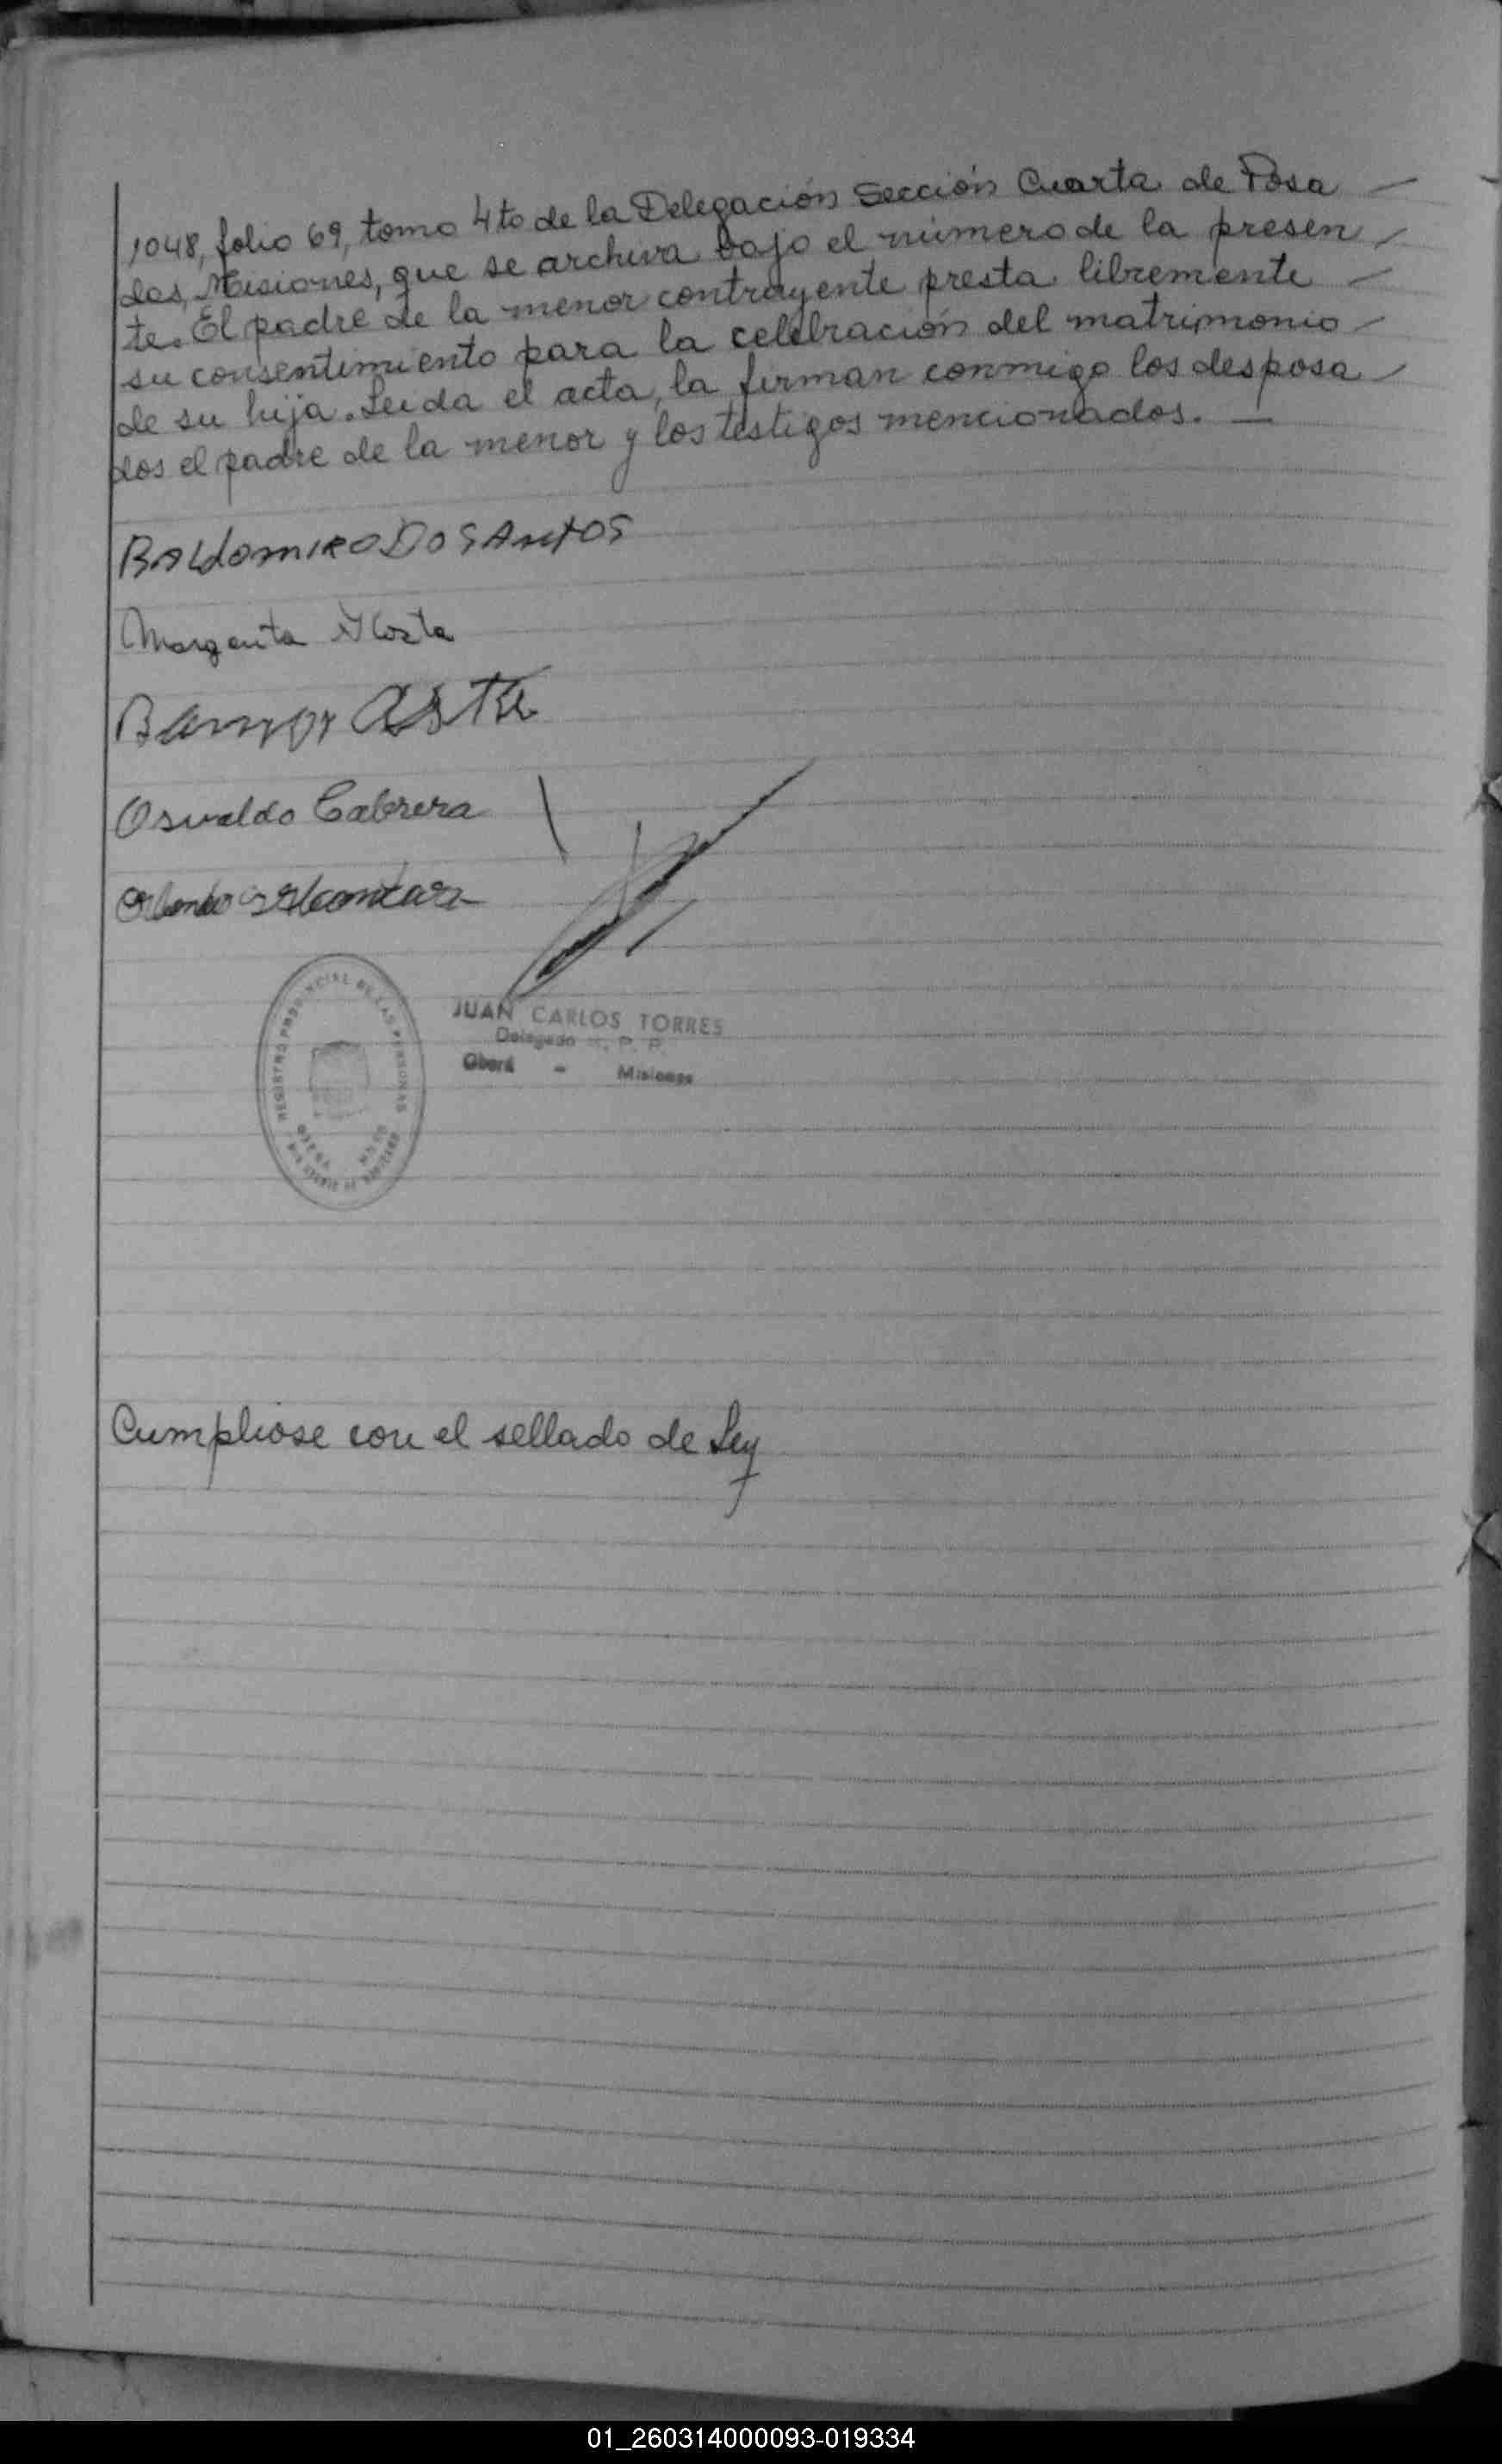 1048, folio 69, tomo 4to de la Delegación Sección Cuarta de Posa —
das, Misiones, que se archiva bajo el número de la presen —
te. El padre de la menor contrayente presta libremente —
su consentimiento para la celebración del matrimonio —
de su hija. Leida el acta, la firman conmigo los desposa —
dos el padre de la menor y los testigos mencionados. —
BALdomiRO DOSAntOS
Margarita Acosta
Osvaldo Cabrera
Alcantara
REGISTRO PROVINCIAL DE LAS PERSONAS
JUAN CARLOS TORRES
Delegado R. P. P.
Oberá - Misiones
Cumpliose con el sellado de Ley
01_260314000093-019334